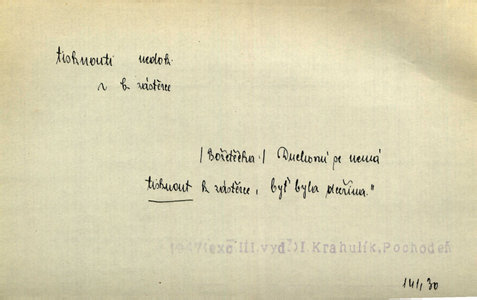 tisknouti nedok.
~ k zástěrce
/Bořetěčka:/ Duchovní se nemá
tisknout k zástěrce, byť byla páteřina."
1947(exc III.vyd.)I.Krahulík.Pochodeň
141, 30